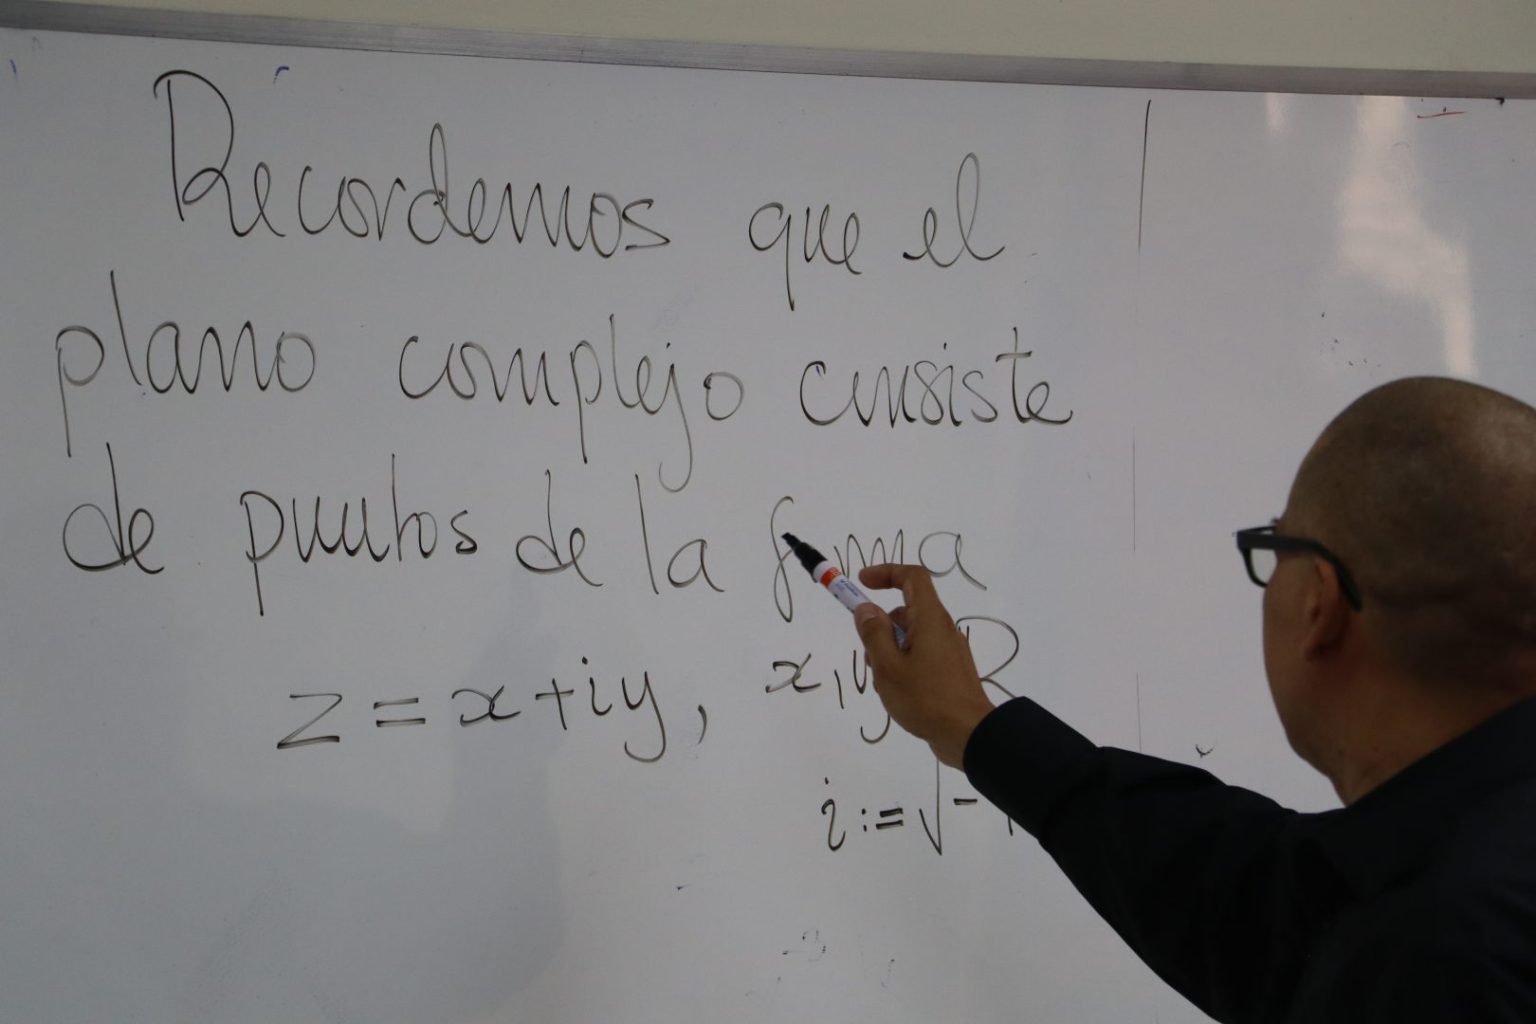 Recordemos que el
plano complejo consiste
de puntos de la forma
z = x + iy, x, y R
i := √-1